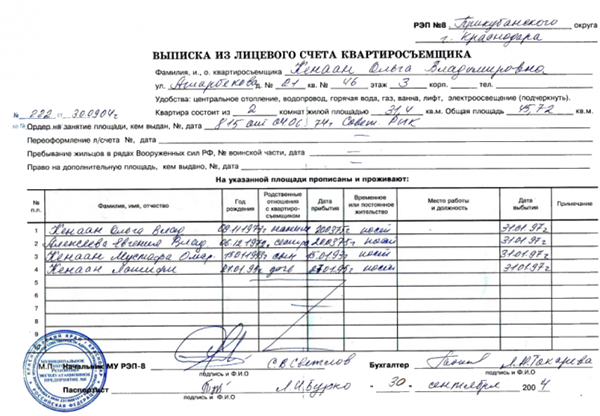 РЭП №8 Прикубанского округа
г. Краснодара
ВЫПИСКА ИЗ ЛИЦЕВОГО СЧЕТА КВАРТИРОСЪЕМЩИКА
Фамилия, и., о. квартиросъемщика Кенаан Ольга Владимировна
ул. д. № 21 кв. № 46 этаж 3 корп. тел.
Удобства: центральное отопление, водопровод, горячая вода, газ, ванна, лифт, электроосвещение (подчеркнуть).
№ 222 от 30.09.04г. Квартира состоит из 2 комнат жилой площадью 31,4 кв.м. Общая площадь 45,72 кв.м.
Ордер на занятие площади, кем выдан, №, дата 815 от 04.06.74г Совет РИК
Переоформление л/счета №, дата —
Пребывание жильцов в рядах Вооруженных сил РФ, № воинской части, дата —
Право на дополнительную площадь, кем выдано, №, дата —
На указанной площади прописаны и проживают:
№ п.п. Фамилия, имя, отчество Год рождения Родственные отношения с квартиросъемщиком Дата прибытия Временное или постоянное жительство Место работы и должность Дата выбытия Примечание
1 Кенаан Ольга Влад пост 31.01.97г
2 Алексеева Евгения Влад сестра пост 31.01.97г
3 Кенаан Мустафа Омар сын пост 31.01.97г
4 Кенаан дочь пост 31.01.97г
5
6
7
8
9
М.П. Начальник МУ РЭП-8 С.В.Светлов Бухгалтер Л.Ю.Токарева
подпись и Ф.И.О подпись и Ф.И.О
Паспортист Л.И.Бурко «30» сентября 2004
подпись и Ф.И.О